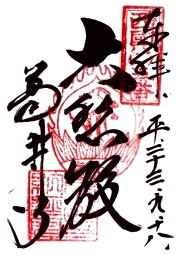 奉拝
平二十三九十八
大悲殿
葛井寺